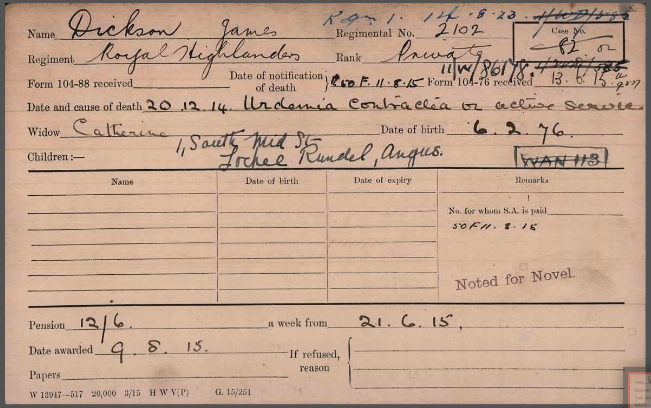 R. 1. 14.8.23.
Name Dickson James Regimental No. 2102 Case No. 82
Regiment Royal Highlanders Rank Private
11/W/86178.
Form 104-88 received Date of notification of death 50F. 11.8.15 Form 104-76 received 13.6.15
Date and cause of death 20.12.14. Urdemia contracted on active service
Widow Catherine Date of birth 6.2.76.
1, South Mid St.
Children:— Lochee Dundee, Angus. WAN 113
Name Date of birth Date of expiry Remarks
No. for whom S.A. is paid
50F 11.8.15
Noted for Novel.
Pension 12/6. a week from 21.6.15.
Date awarded 9.8.15. If refused, reason
Papers
W 13947—517 20,000 3/15 H W V(P) G. 15/251